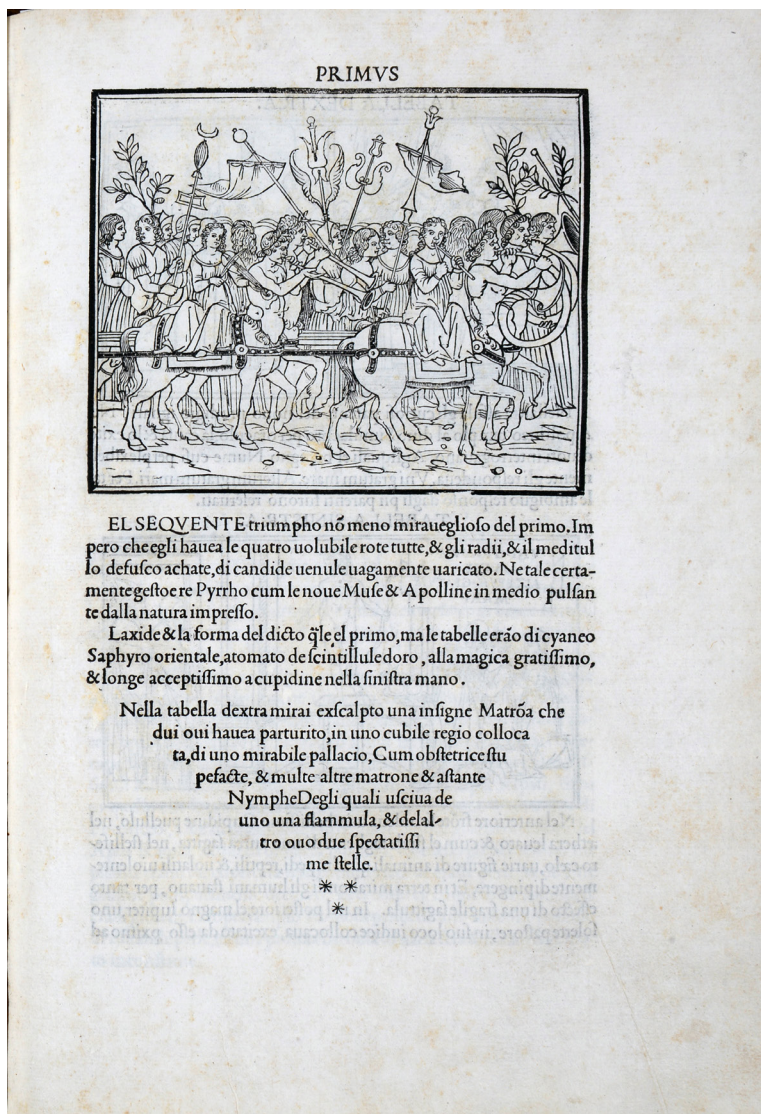 PRIMVS
EL SEQVENTE triumpho nõ meno miraueglioso del primo. Im
pero che egli hauea le quatro uolubile rote tutte, & gli radii, & il meditul
lo defusco achate, di candide uenule uagamente uaricato. Ne tale certa-
mente gestoe re Pyrrho cum le noue Muse & Apolline in medio pulsan
te dalla natura impresso.
Laxide & la forma del dicto q̃le el primo, ma le tabelle erão di cyaneo
Saphyro orientale, atomato de scintillule doro, alla magica gratissimo,
& longe acceptissimo a cupidine nella sinistra mano.
Nella tabella dextra mirai exscalpto una insigne Matrõa che
dui oui hauea parturito, in uno cubile regio colloca
ta, di uno mirabile pallacio, Cum obstetrice stu
pefacte, & multe altre matrone & astante
Nymphe Degli quali usciua de
uno una flammula, & delal-
tro ouo due spectatissi
me stelle.
* *
*